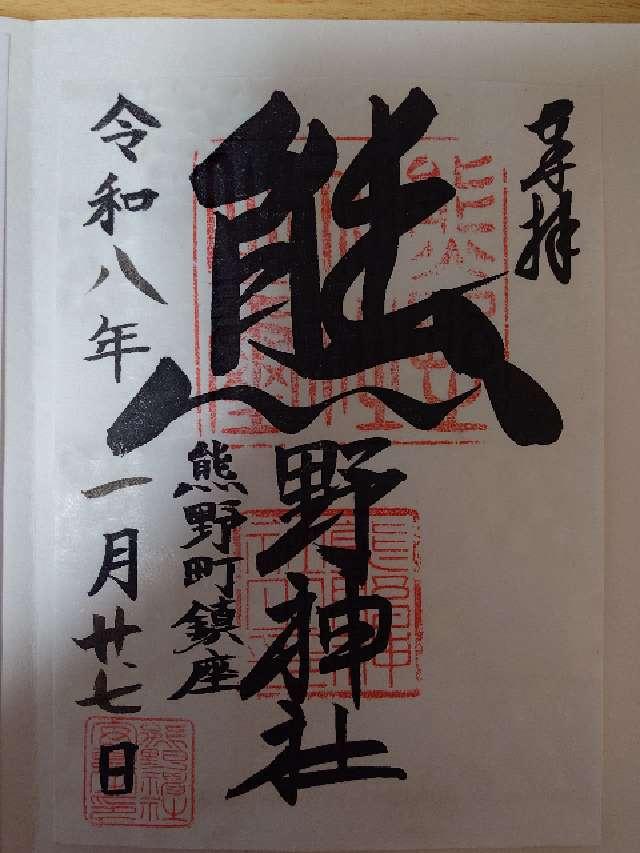 奉拝
熊野神社
熊野町鎮座
令和八年一月廿七日